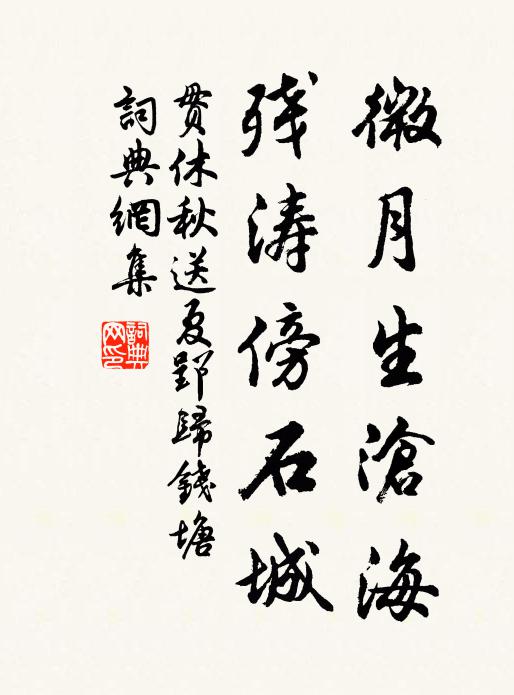 微月生滄海
残涛傍石城
贯休秋送夏郢歸錢塘
詞典網集
詞典网印